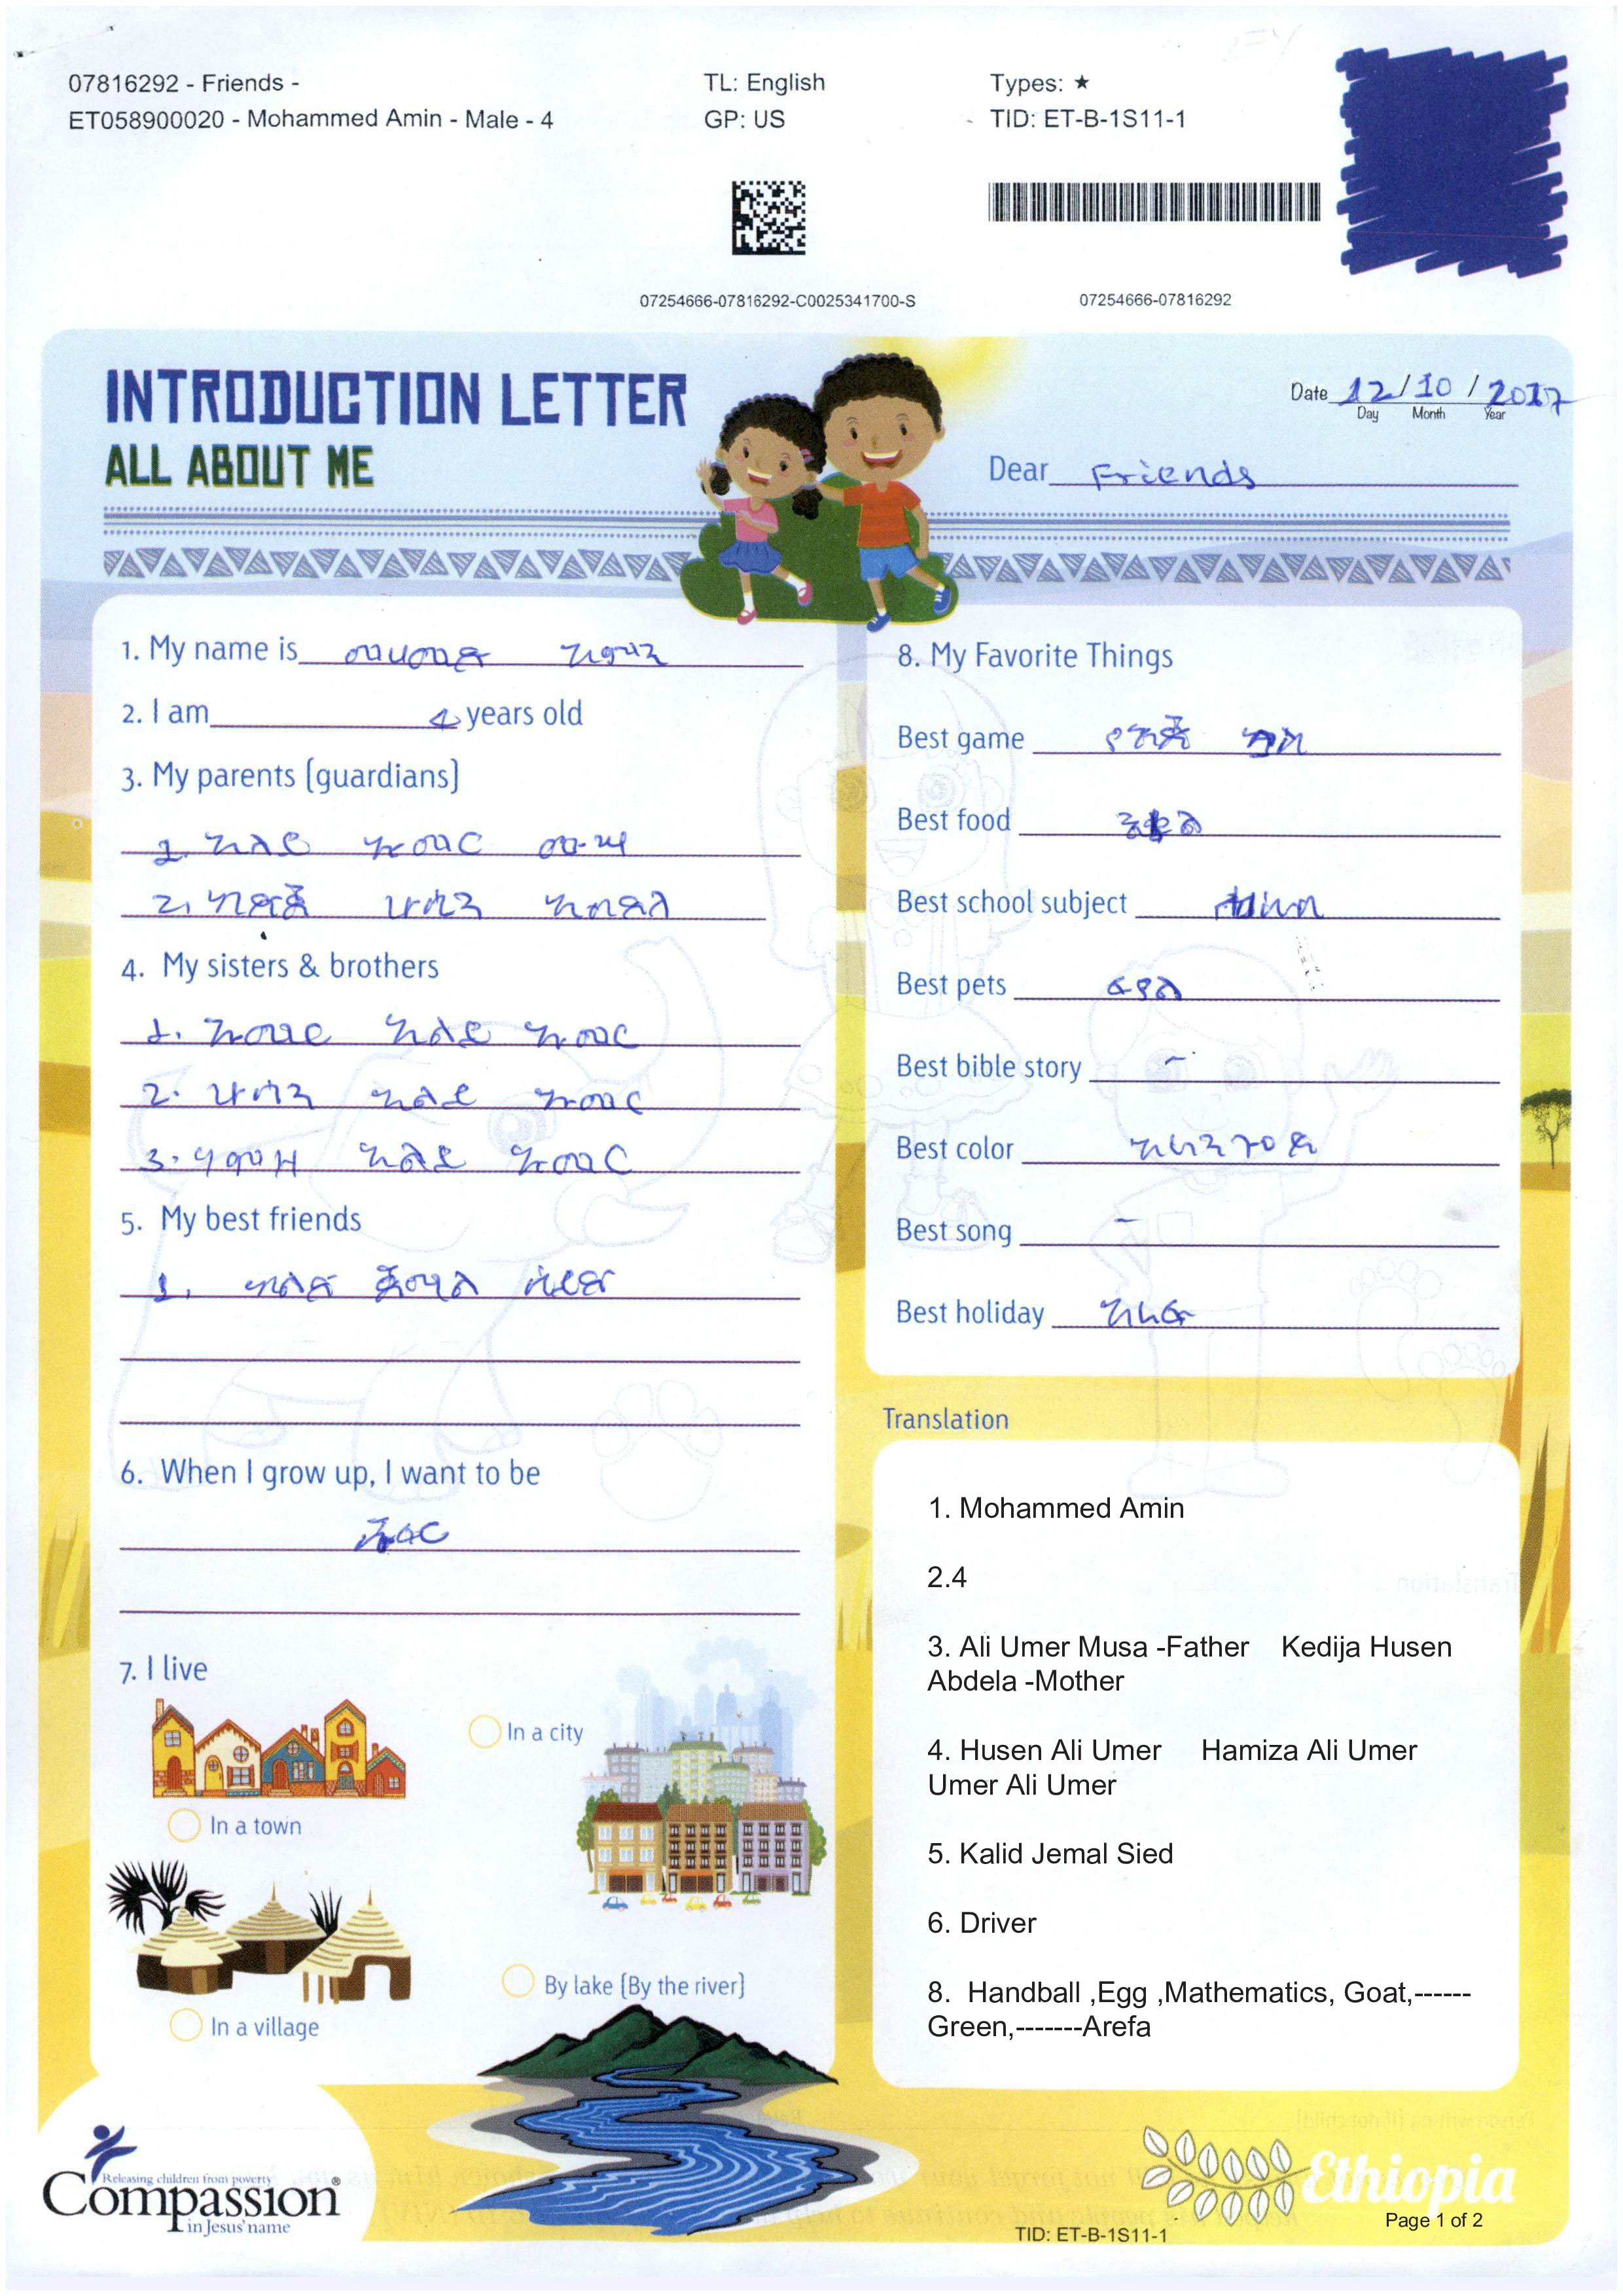 07816292 - Friends -
ET058900020 - Mohammed Amin - Male - 4
TL: English
GP: US
Types: ★
TID: ET-B-1S11-1
07254666-07816292-C0025341700-S
07254666-07816292
INTRODUCTION LETTER
ALL ABOUT ME
Date 12/10/2017
Day Month Year
Dear Friends
1. My name is መሀመድ አሚን
2. I am 4 years old
3. My parents (guardians)
1. አሊ ኡመር ሙሳ
2. ከድጃ ሁሴን አብደላ
4. My sisters & brothers
1. ኡመር አሊ ኡመር
2. ሁሴን አሊ ኡመር
3. ሃሚዛ አሊ ኡመር
5. My best friends
1. ካሊድ ጀማል ሰይድ
6. When I grow up, I want to be
ሹፌር
7. I live
In a city
In a town
By lake (By the river)
In a village
8. My Favorite Things
Best game የእጅ ኳስ
Best food እንቁላል
Best school subject ሂሳብ
Best pets ፍየል
Best bible story -
Best color አረንጓዴ
Best song -
Best holiday አረፋ
Translation
1. Mohammed Amin
2.4
3. Ali Umer Musa -Father Kedija Husen
Abdela -Mother
4. Husen Ali Umer Hamiza Ali Umer
Umer Ali Umer
5. Kalid Jemal Sied
6. Driver
8. Handball ,Egg ,Mathematics, Goat,------
Green,-------Arefa
Releasing children from poverty
Compassion®
in Jesus' name
Ethiopia
Page 1 of 2
TID: ET-B-1S11-1